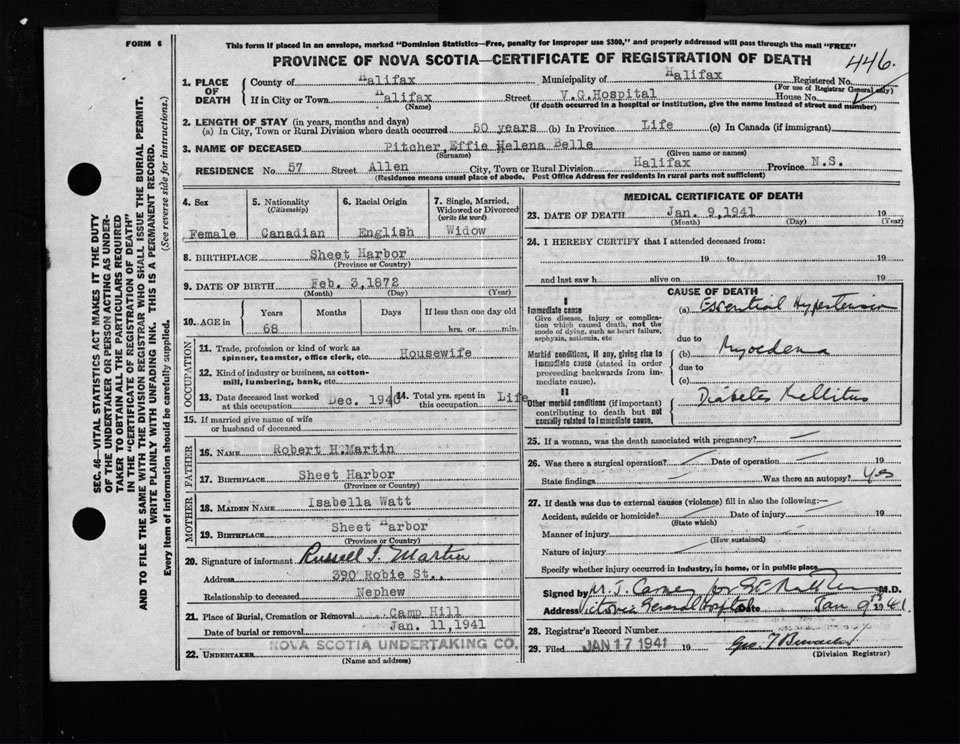 FORM 6
This form if placed in an envelope, marked "Dominion Statistics—Free, penalty for improper use $300," and properly addressed will pass through the mail "FREE"
PROVINCE OF NOVA SCOTIA—CERTIFICATE OF REGISTRATION OF DEATH
446.
1. PLACE OF DEATH
County of Halifax Municipality of Halifax Registered No.
(For use of Registrar General only)
If in City or Town Halifax Street V.G.Hospital House No.
(Name) (If death occurred in a hospital or institution, give the name instead of street and number)
2. LENGTH OF STAY (in years, months and days)
(a) In City, Town or Rural Division where death occurred 50 years (b) In Province Life (c) In Canada (if immigrant)
3. NAME OF DECEASED Pitcher, Effie Helena Belle
(Surname) (Given name or names)
RESIDENCE No. 57 Street Allen City, Town or Rural Division Halifax Province N.S.
(Residence means usual place of abode. Post Office Address for residents in rural parts not sufficient)
4. Sex 5. Nationality 6. Racial Origin 7. Single, Married, Widowed or Divorced
(Citizenship) (write the word)
Female Canadian English Widow
8. BIRTHPLACE Sheet Harbor
(Province or Country)
9. DATE OF BIRTH Feb. 3,1872
(Month) (Day) (Year)
10. AGE in Years Months Days If less than one day old
68 hrs. or min.
OCCUPATION
11. Trade, profession or kind of work as spinner, teamster, office clerk, etc. Housewife
12. Kind of industry or business, as cotton-mill, lumbering, bank, etc.
13. Date deceased last worked at this occupation Dec. 1940 14. Total yrs. spent in this occupation Life
15. If married give name of wife or husband of deceased
FATHER
16. NAME Robert H.Martin
17. BIRTHPLACE Sheet Harbor
(Province or Country)
MOTHER
18. MAIDEN NAME Isabella Watt
19. BIRTHPLACE Sheet Harbor
(Province or Country)
20. Signature of informant Russell I. Martin
Address 390 Robie St.,
Relationship to deceased Nephew
21. Place of Burial, Cremation or Removal Camp Hill
Date of burial or removal Jan. 11,1941
22. UNDERTAKER NOVA SCOTIA UNDERTAKING CO.
(Name and address)
MEDICAL CERTIFICATE OF DEATH
23. DATE OF DEATH Jan. 9,1941 19
(Month) (Day) (Year)
24. I HEREBY CERTIFY that I attended deceased from:
19 to 19
and last saw h alive on 19
CAUSE OF DEATH
I
Immediate cause
Give disease, injury or complication which caused death, not the mode of dying, such as heart failure, asphyxia, asthenia, etc
(a) Essential Hypertension
due to
Morbid conditions, if any, giving rise to immediate cause (stated in order proceeding backwards from immediate cause).
(b) Myoedema
due to
(c)
II
Other morbid conditions (if important) contributing to death but not causally related to immediate cause.
Diabetes Mellitus
25. If a woman, was the death associated with pregnancy?
26. Was there a surgical operation? Date of operation 19
State findings Was there an autopsy? Yes
27. If death was due to external causes (violence) fill in also the following:—
Accident, suicide or homicide? Date of injury 19
(State which)
Manner of injury
(How sustained)
Nature of injury
Specify whether injury occurred in industry, in home, or in public place
Signed by M. J. Carney for M.D.
Address Victoria General Hospital Date Jan 9th 1941.
28. Registrar's Record Number
29. Filed JAN 17 1941 19
(Division Registrar)
SEC. 46—VITAL STATISTICS ACT MAKES IT THE DUTY
OF THE UNDERTAKER OR PERSON ACTING AS UNDER-
TAKER TO OBTAIN ALL THE PARTICULARS REQUIRED
IN THE "CERTIFICATE OF REGISTRATION OF DEATH"
AND TO FILE THE SAME WITH THE DIVISION REGISTRAR WHO SHALL ISSUE THE BURIAL PERMIT.
WRITE PLAINLY WITH UNFADING INK. THIS IS A PERMANENT RECORD.
Every item of information should be carefully supplied. (See reverse side for instructions.)